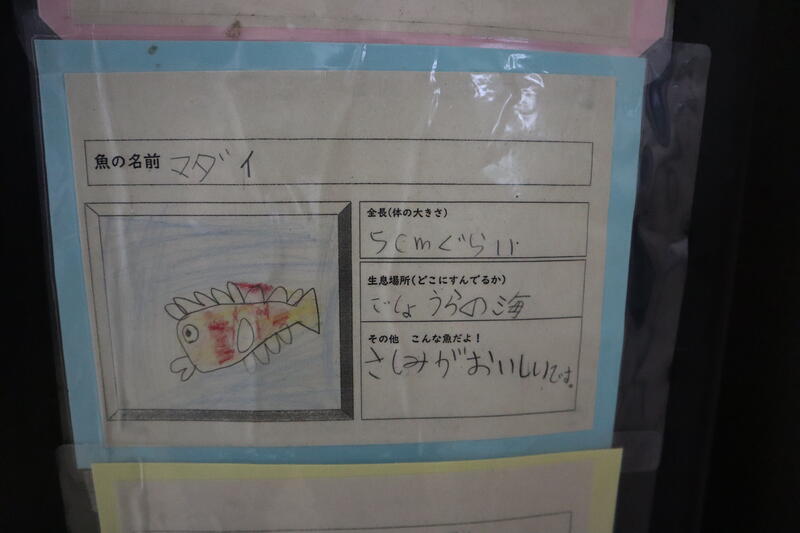 魚の名前 マダイ
全長(体の大きさ)
5cmぐらい
生息場所(どこにすんでるか)
ごしょうらの海
その他 こんな魚だよ!
さしみがおいしいです。